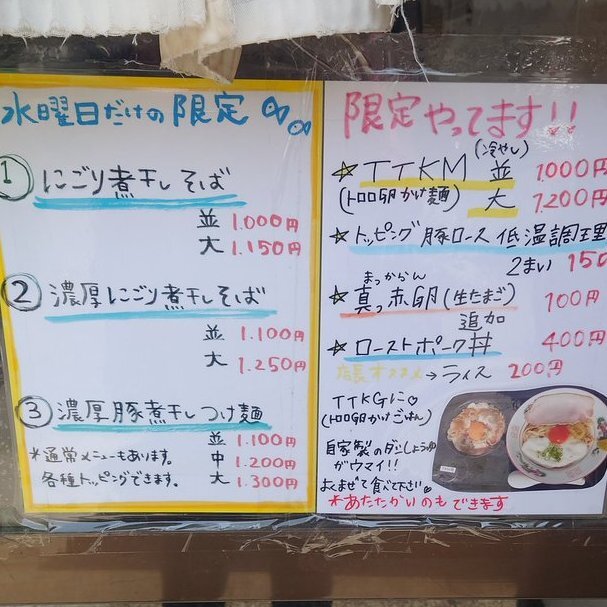 水曜日だけの限定
① にごり煮干しそば
並 1.000円
大 1.150円
② 濃厚にごり煮干しそば
並 1.100円
大 1.250円
③ 濃厚豚煮干しつけ麺
並 1.100円
中 1.200円
大 1.300円
*通常メニューもあります。
各種トッピングできます。
限定やってます!!
(冷やし)
☆TTKM 並 1,000円
(トロロ卵かけ麺) 大 1,200円
☆トッピング豚ロース低温調理
2まい 150
まっからん
☆真っ赤卵(生たまご) 100円
追加
☆ローストポーク丼 400円
店長オススメ→ライス 200円
TTKGに♡
(トロロ卵かけごはん)
自家製のダシしょうゆ
がウマイ!!
よくまぜて食べて下さい♡
*あたたかいのもできます